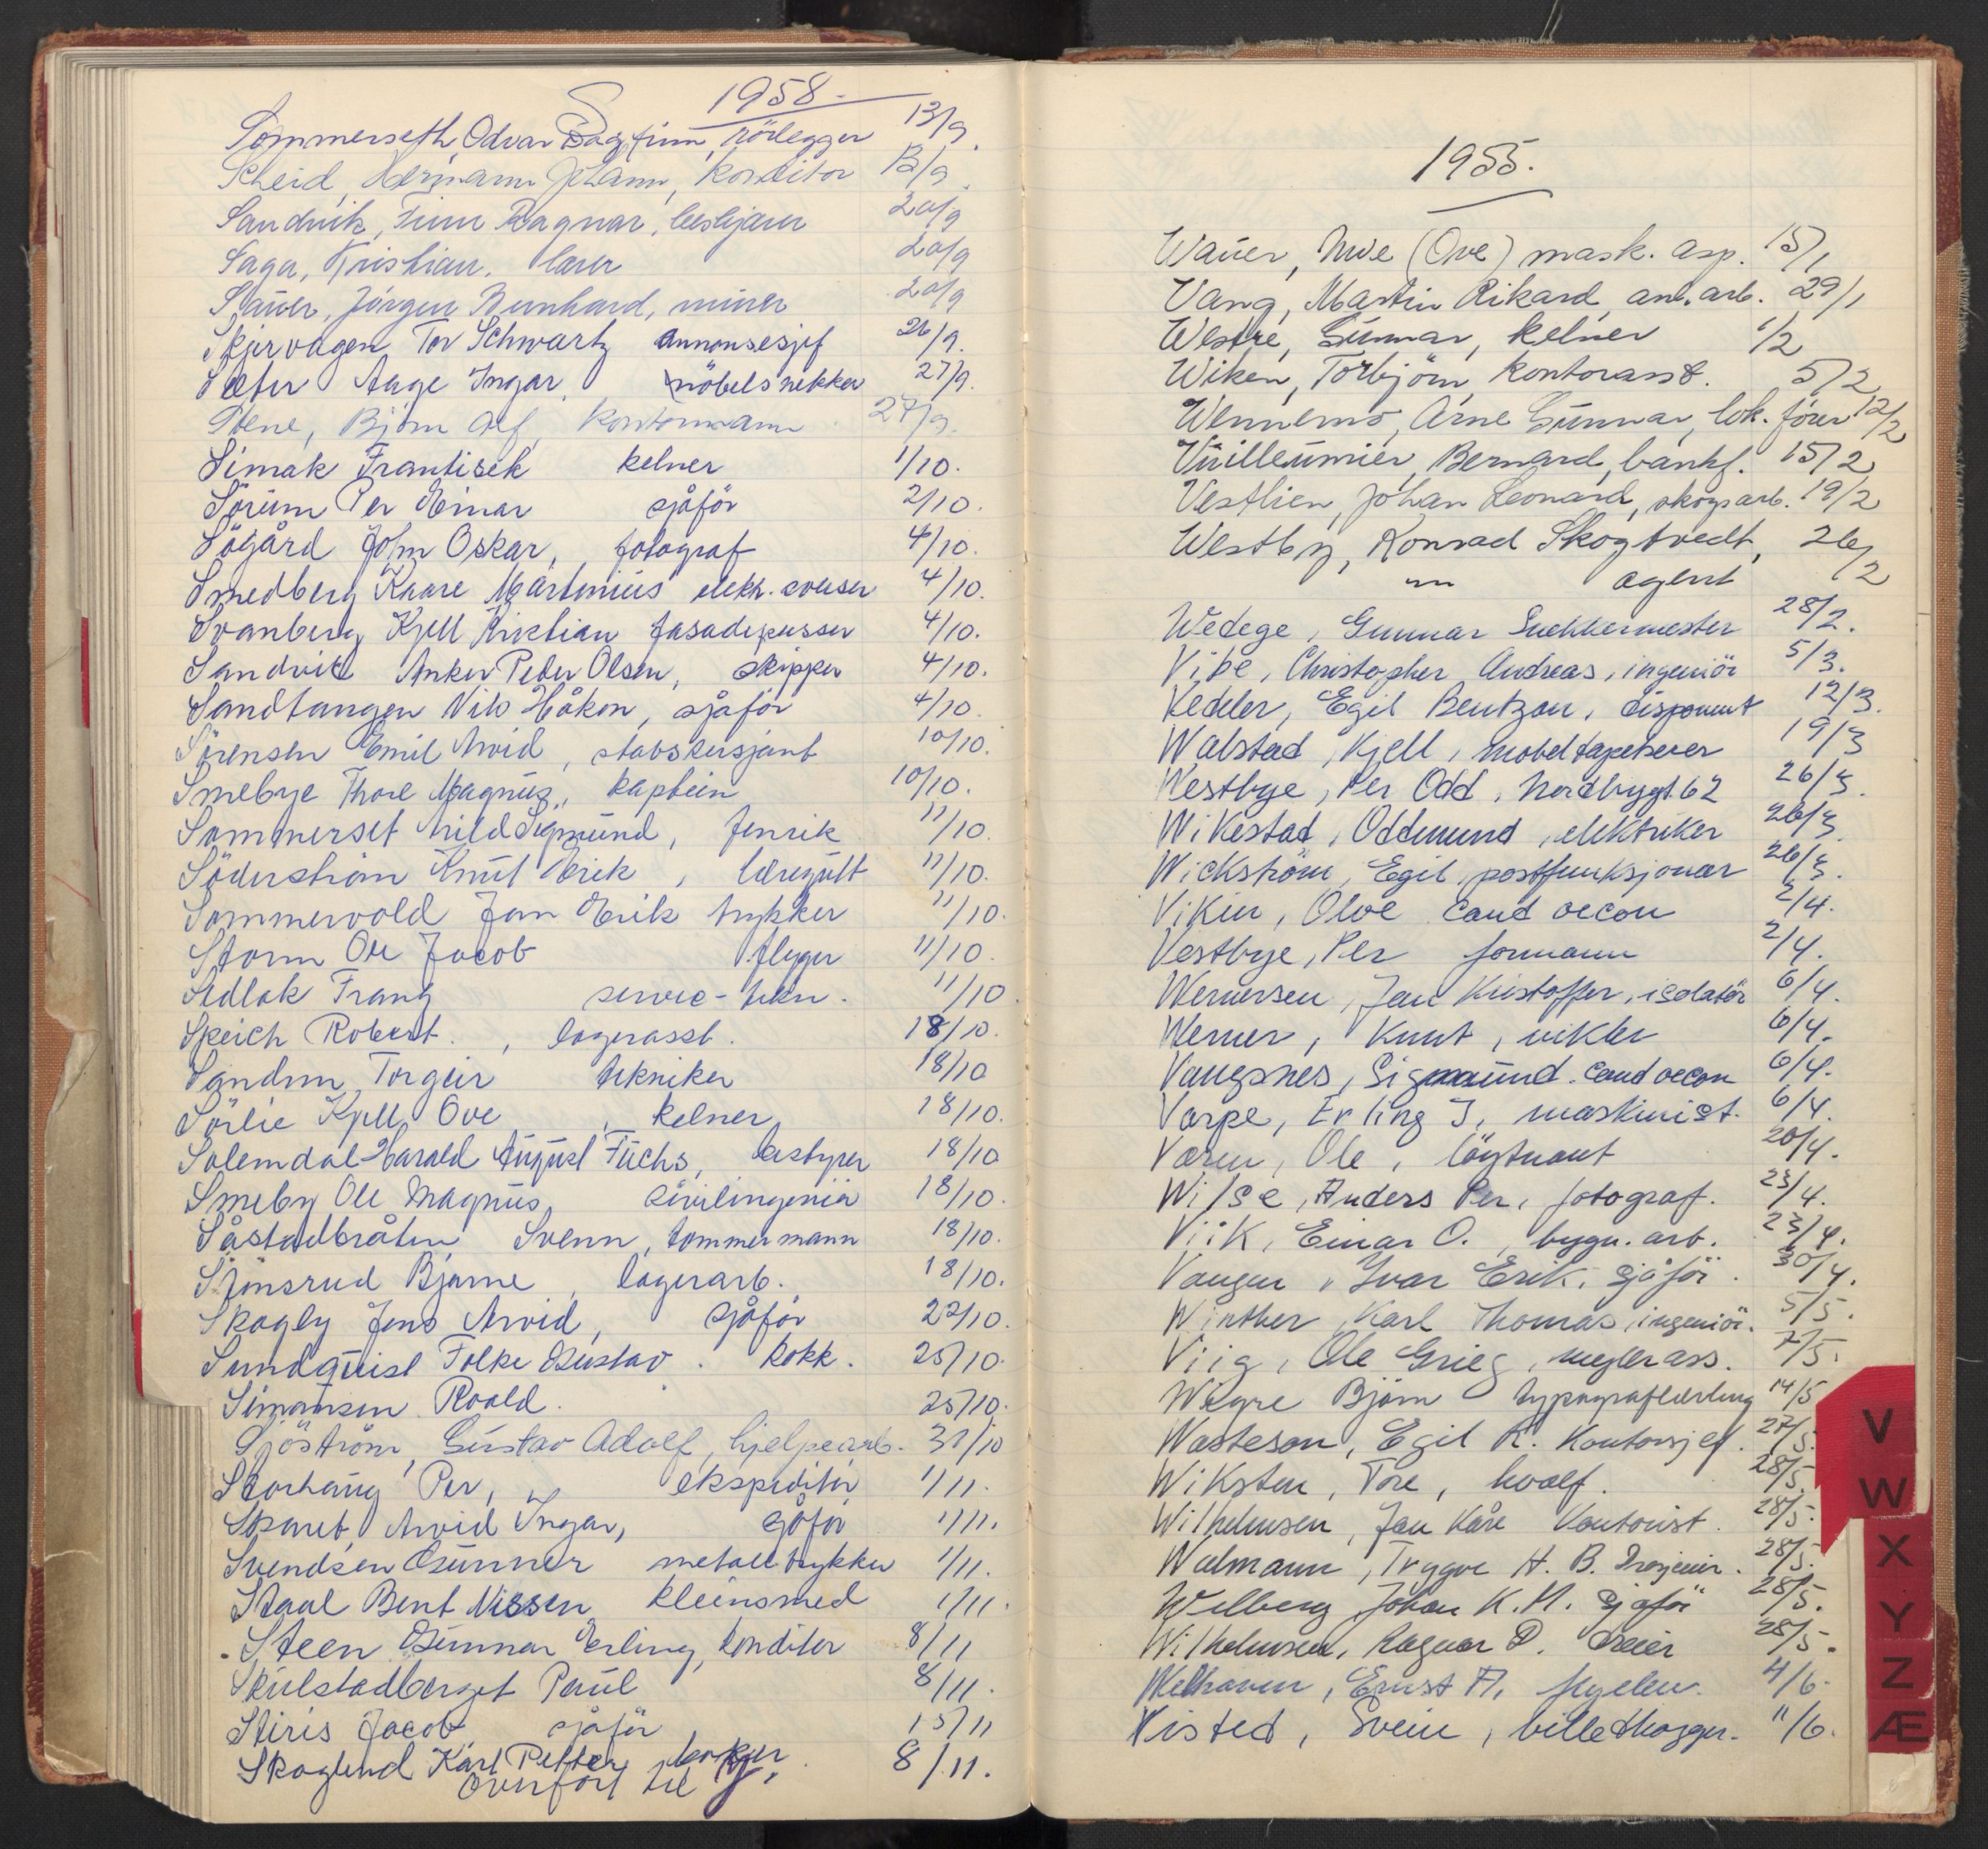 S
1958.
Sommerseth, Odvar Dagfinn, rörlegger 13/9.
Scheid, Hermann Johann, konditor 13/9.
Sandvik, Finn Ragnar, 20/9
Saga, Kristian, lærer 20/9
Sauer, Jörgen Bernhard, murer 20/9
Skjervagen Tor Schwartz annonsesjef 26/9.
Sæter Aage Ingar, möbelsnekker 27/9.
Stene, Björn Alf, kontormann 27/9.
Simak Frantisek kelner 1/10.
Sörum Per Einar sjåför 2/10.
Sögård John Oskar, fotograf 4/10.
Smedberg Kaare Martinius elektr. sveiser 4/10.
Svanberg Kjell Kristian fasadepusser 4/10.
Sandvik Anker Peder Olsen, skipper 4/10.
Sandtangen Nils Håkon, sjåför 4/10.
Sörensen Emil Arvid, stabssersjant 10/10.
Smebye Thore Magnus, kaptein 10/10.
Sommerset Arild Sigmund, fenrik 11/10.
Söderström Knut Erik, læregutt 11/10.
Sommervold Jan Erik trykker 11/10.
Storm Ole Jacob flyger 11/10.
Sedlak Franz service-tekn. 11/10.
Speich Robert, lagerasst. 18/10.
Sandum Torgeir tekniker 18/10
Sörlie Kjell Ove, kelner 18/10.
Solemdal Harald August Fuchs, bestyrer 18/10
Smeby Ole Magnus sivilingeniör 18/10.
Såstadbråten Svenn, tømmermann 18/10.
Stönsrud Bjarne, lagerarb. 18/10.
Skogly Jens Arvid, sjåför 22/10.
Sundquist Folke Gustav. kokk. 25/10.
Simonsen Roald. 25/10.
Sjöström, Gustav Adolf, hjelpearb. 31/10
Storhaug Per, ekspeditör 1/11.
Skaret, Arvid Ingar, sjåför 1/11.
Svendsen Gunner metalltrykker 1/11.
Staal Bent Nissen kleinsmed 1/11.
Steen Gunnar Erling, konditor 8/11
Skulstadberget Paul 8/11.
Stiris Jacob sjåför, 15/11
Skoglund Karl Petter 8/11.
Overfört til
1955.
Wauer, Uwe (Ove) mask. asp. 15/1
Vang, Martin Rikard, anl. arb. 29/1
Westre, Gunnar, kelner 1/2
Wiken, Torbjörn, kontorasst. 5/2
Wennemo, Arne Gunnar, lok. förer 12/2
Vuilleumier, Bernard, bankf. 15/2
Vestlien, Johan Leonard, skogsarb. 19/2
Westby, Konrad Skogtvedt, 26/2
" agent
Wedege, Gunnar Snekkermester 28/2.
Vibe, Christopher Andreas, ingeniör 5/3.
Vedeler, Egil Bentzon, disponent 12/3.
Walstad, Kjell, möbeltapetserer 19/3
Westbye, Per Odd, Nordbygt. 62 26/3.
Wikestad, Oddmund, elektriker 26/3.
Wickström, Egil, postfunksjonær 26/3.
Viken, Olve cand oecon 2/4.
Vestbye, Per formann 2/4.
Wernersen, Jan Kristoffer, isolatör 6/4.
Werner, Knut, vikler 6/4.
Vangsnes, Sigmund. Cand oecon 6/4.
Varpe, Erling J, maskinist. 6/4.
Væren, Ole, löytnant 20/4.
Wilse, Anders Per, fotograf. 23/4.
Viik, Einar O., bygn. arb. 23/4.
Vangen, Ivar Erik, sjåför. 30/4.
Winther, Karl Thomas, ingeniör. 5/5.
Viig, Ole Grieg, meglerass. 7/5.
Wegre Björn typograflærling 14/5
Wasteson, Egil R. Kontorsjef. 27/5.
Wiksten, Tore, hvalf. 28/5.
Wilhelmsen, Jan Kåre Kontorist. 28/5.
Walmann, Trygve H. B. Ingeniör. 28/5.
Welberg, Johan K. H. sjåför 28/5.
Wilhelmsen, Ragnar D. Dreier 28/5.
Welhaven, Ernst A. 4/6.
Visted, Svein, billedhugger. 11/6.
V
W
X
Y
Z
Æ